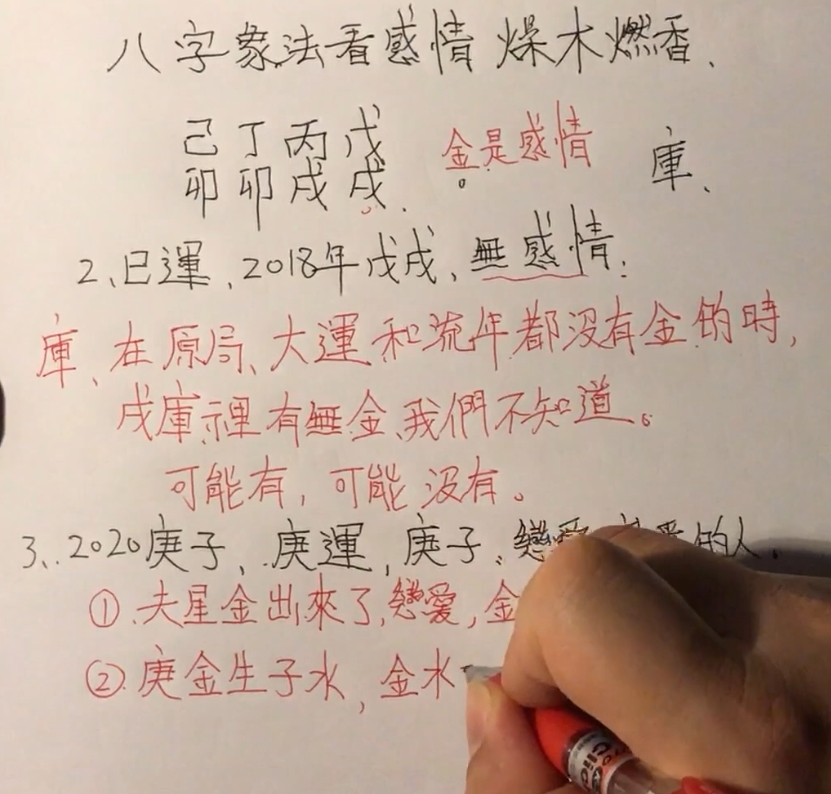 八字象法看感情 燥木燃香、
己丁丙戊 金是感情 庫、
卯卯戌戌、
2、巳運、2018年戊戌、無感情：
庫、在原局、大運和流年都没有金的時，
戌庫裡有無金、我們不知道。
可能有，可能没有。
3、2020庚子、庚運，庚子、戀愛 的人。
①、夫星金出來了，戀愛，金
②、庚金生子水，金水
Clic